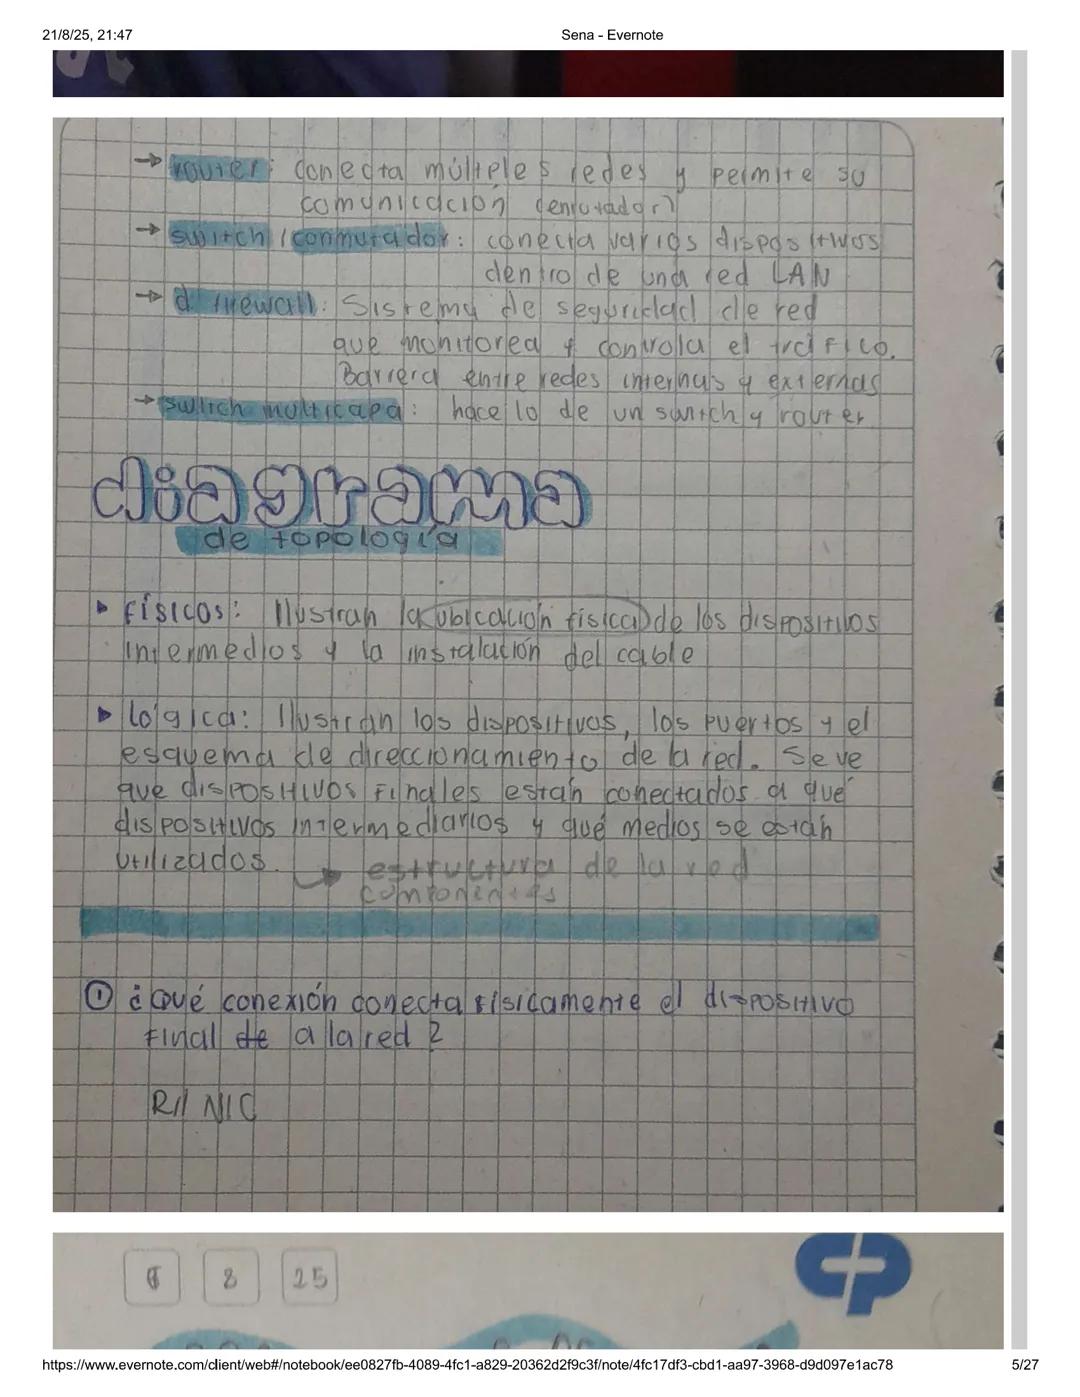 21/8/25, 21:47
Sena - Evernote
→ router: conecta múlteples redes y permite su
comunicación (enrutador)
→ switch / conmutador: conecta varios dispositivos
dentro de una red LAN
→ d firewall: Sistema de seguridad de red
que monitorea y controla el tráfico.
Barrera entre redes internas y externas
→ switch multicapa: hace lo de un switch y router
diagrama
de topología
▸ físicos: Ilustran la ubicación física de los dispositivos
intermedios y la instalación del cable
▸ Lógica: Ilustran los dispositivos, los puertos y el
esquema de direccionamiento de la red. Se ve
que dispositivos finales están conectados a qué
dispositivos intermediarios y qué medios se están
utilizados. → estructura de la red
componentes
① ¿Qué conexión conecta físicamente el dispositivo
final de a la red?
R// NIC
8 25
https://www.evernote.com/client/web#/notebook/ee0827fb-4089-4fc1-a829-20362d2f9c3f/note/4fc17df3-cbd1-aa97-3968-d9d097e1ac78
5/27